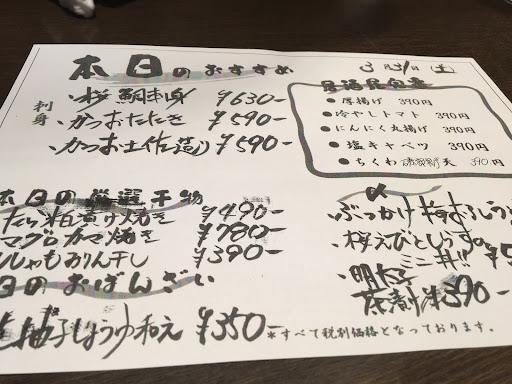 本日のおすすめ
3月31日(土)
刺身
・桜鯛刺身 ¥630-
・かつおたたき ¥590-
・かつお土佐造り ¥590-
居酒屋定番
●厚揚げ 390円
●冷やしトマト 390円
●にんにく丸揚げ 390円
●塩キャベツ 390円
●ちくわ磯部天 390円
本日の厳選干物
たら粕漬け焼き ¥490-
マグロカマ焼き ¥780-
ししゃもみりん干し ¥390-
日のおばんざい
柚子しょうゆ和え ¥350-
〆
ぶっかけ梅おろしう
・桜えびとしらすの
ミニ丼!! ¥5
・明太子
茶漬け ¥390-
*すべて税別価格となっております。